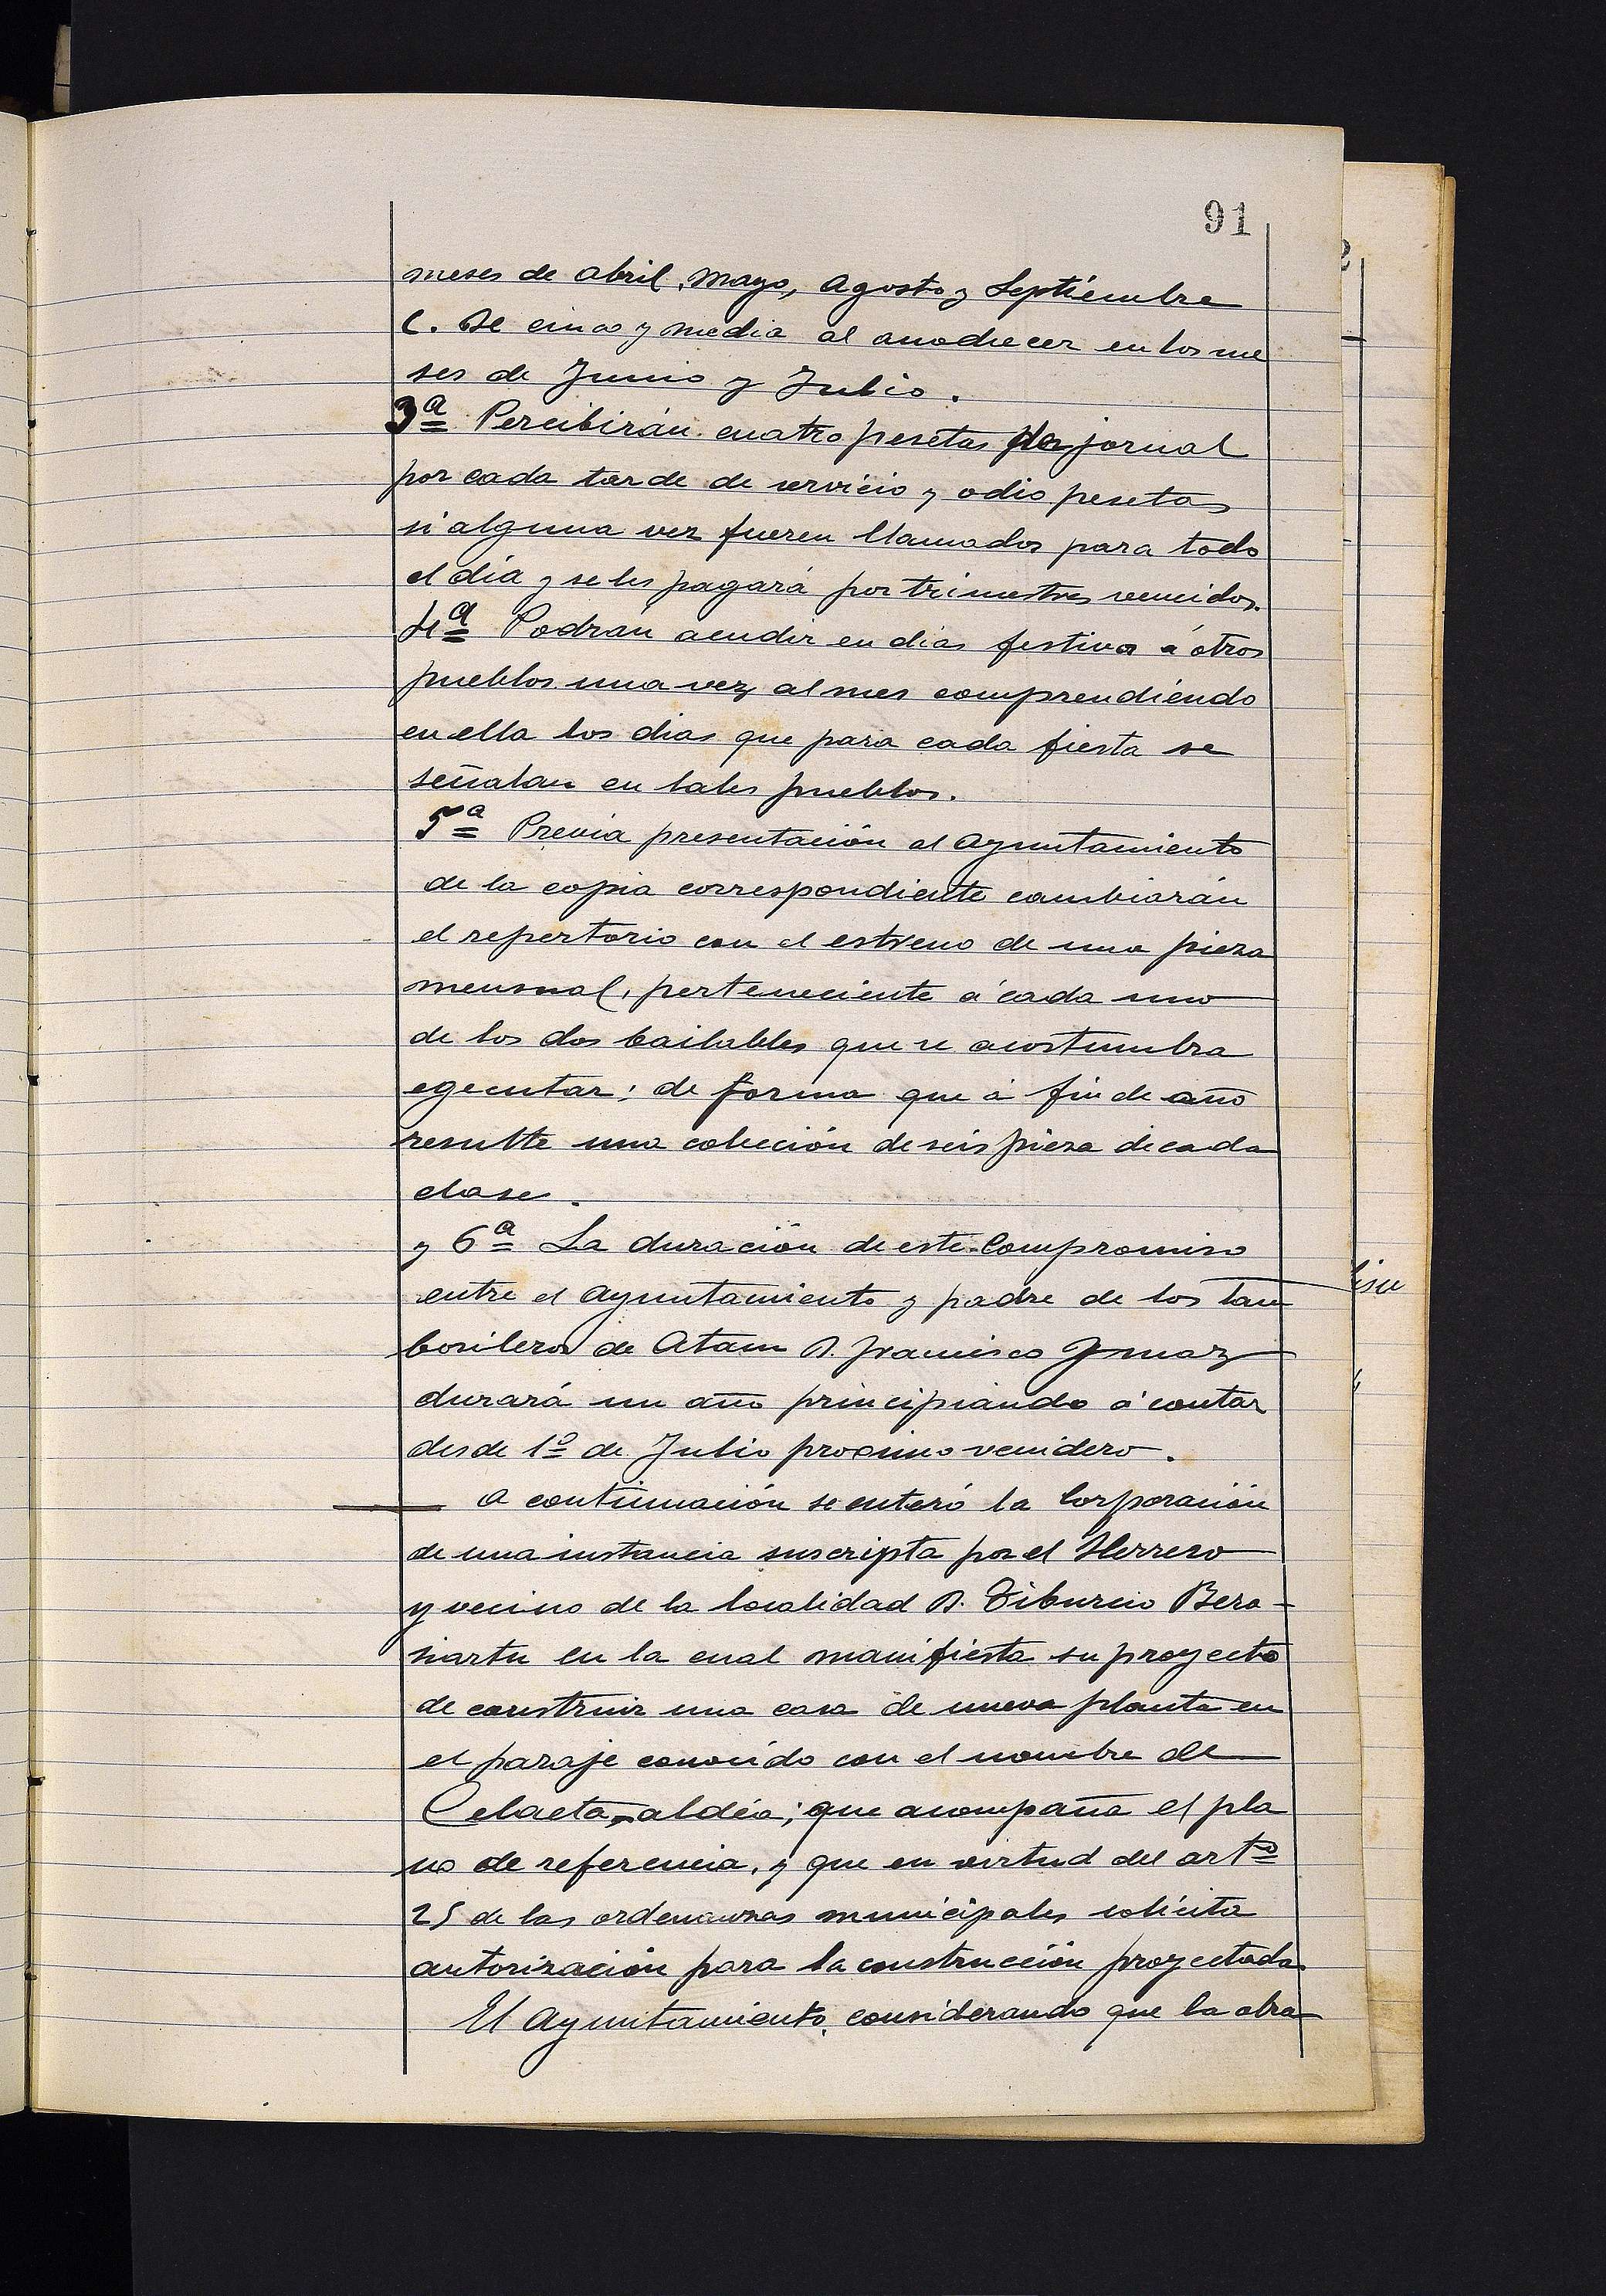 91
meses de abril, mayo, agosto y Septiembre
C. De cinco y media al anochecer en los me
ses de Junio y Julio.
3ª Percibirán cuatro pesetas de jornal
por cada tarde de servicio y ocho pesetas
si alguna vez fueren llamados para todo
el día y se les pagará por trimestres vencidos.
4ª Podrán acudir en días festivos á otros
pueblos una vez al mes comprendiendo
en ella los dias que para cada fiesta se
señalan en tales pueblos.
5ª Previa presentación al Ayuntamiento
de la copia correspondiente cambiarán
el repertorio con el estreno de una pieza
mensual, perteneciente á cada uno
de los dos bailables que se acostumbra
egecutar; de forma que á fin de año
resulte una colección de seis pieza de cada
clase.
y 6ª La duración de este Compromiso
entre el Ayuntamiento y padre de los tam
borileros de Ataun D. Francisco
durará un año principiando á contar
desde 1º de Julio proximo venidero.
A continuación se enteró la Corporación
de una instancia suscripta por el Herrero
y vecino de la localidad D. Tiburcio Bera-
siartu en la cual manifiesta su proyecto
de construir una casa de nueva planta en
el paraje conocido con el nombre de
Celaeta, aldea; que acompaña el pla
no de referencia, y que en virtud del artº
25 de las ordenanzas municipales solicita
autorización para la construcción proyectada.
El Ayuntamiento, considerando que la obra